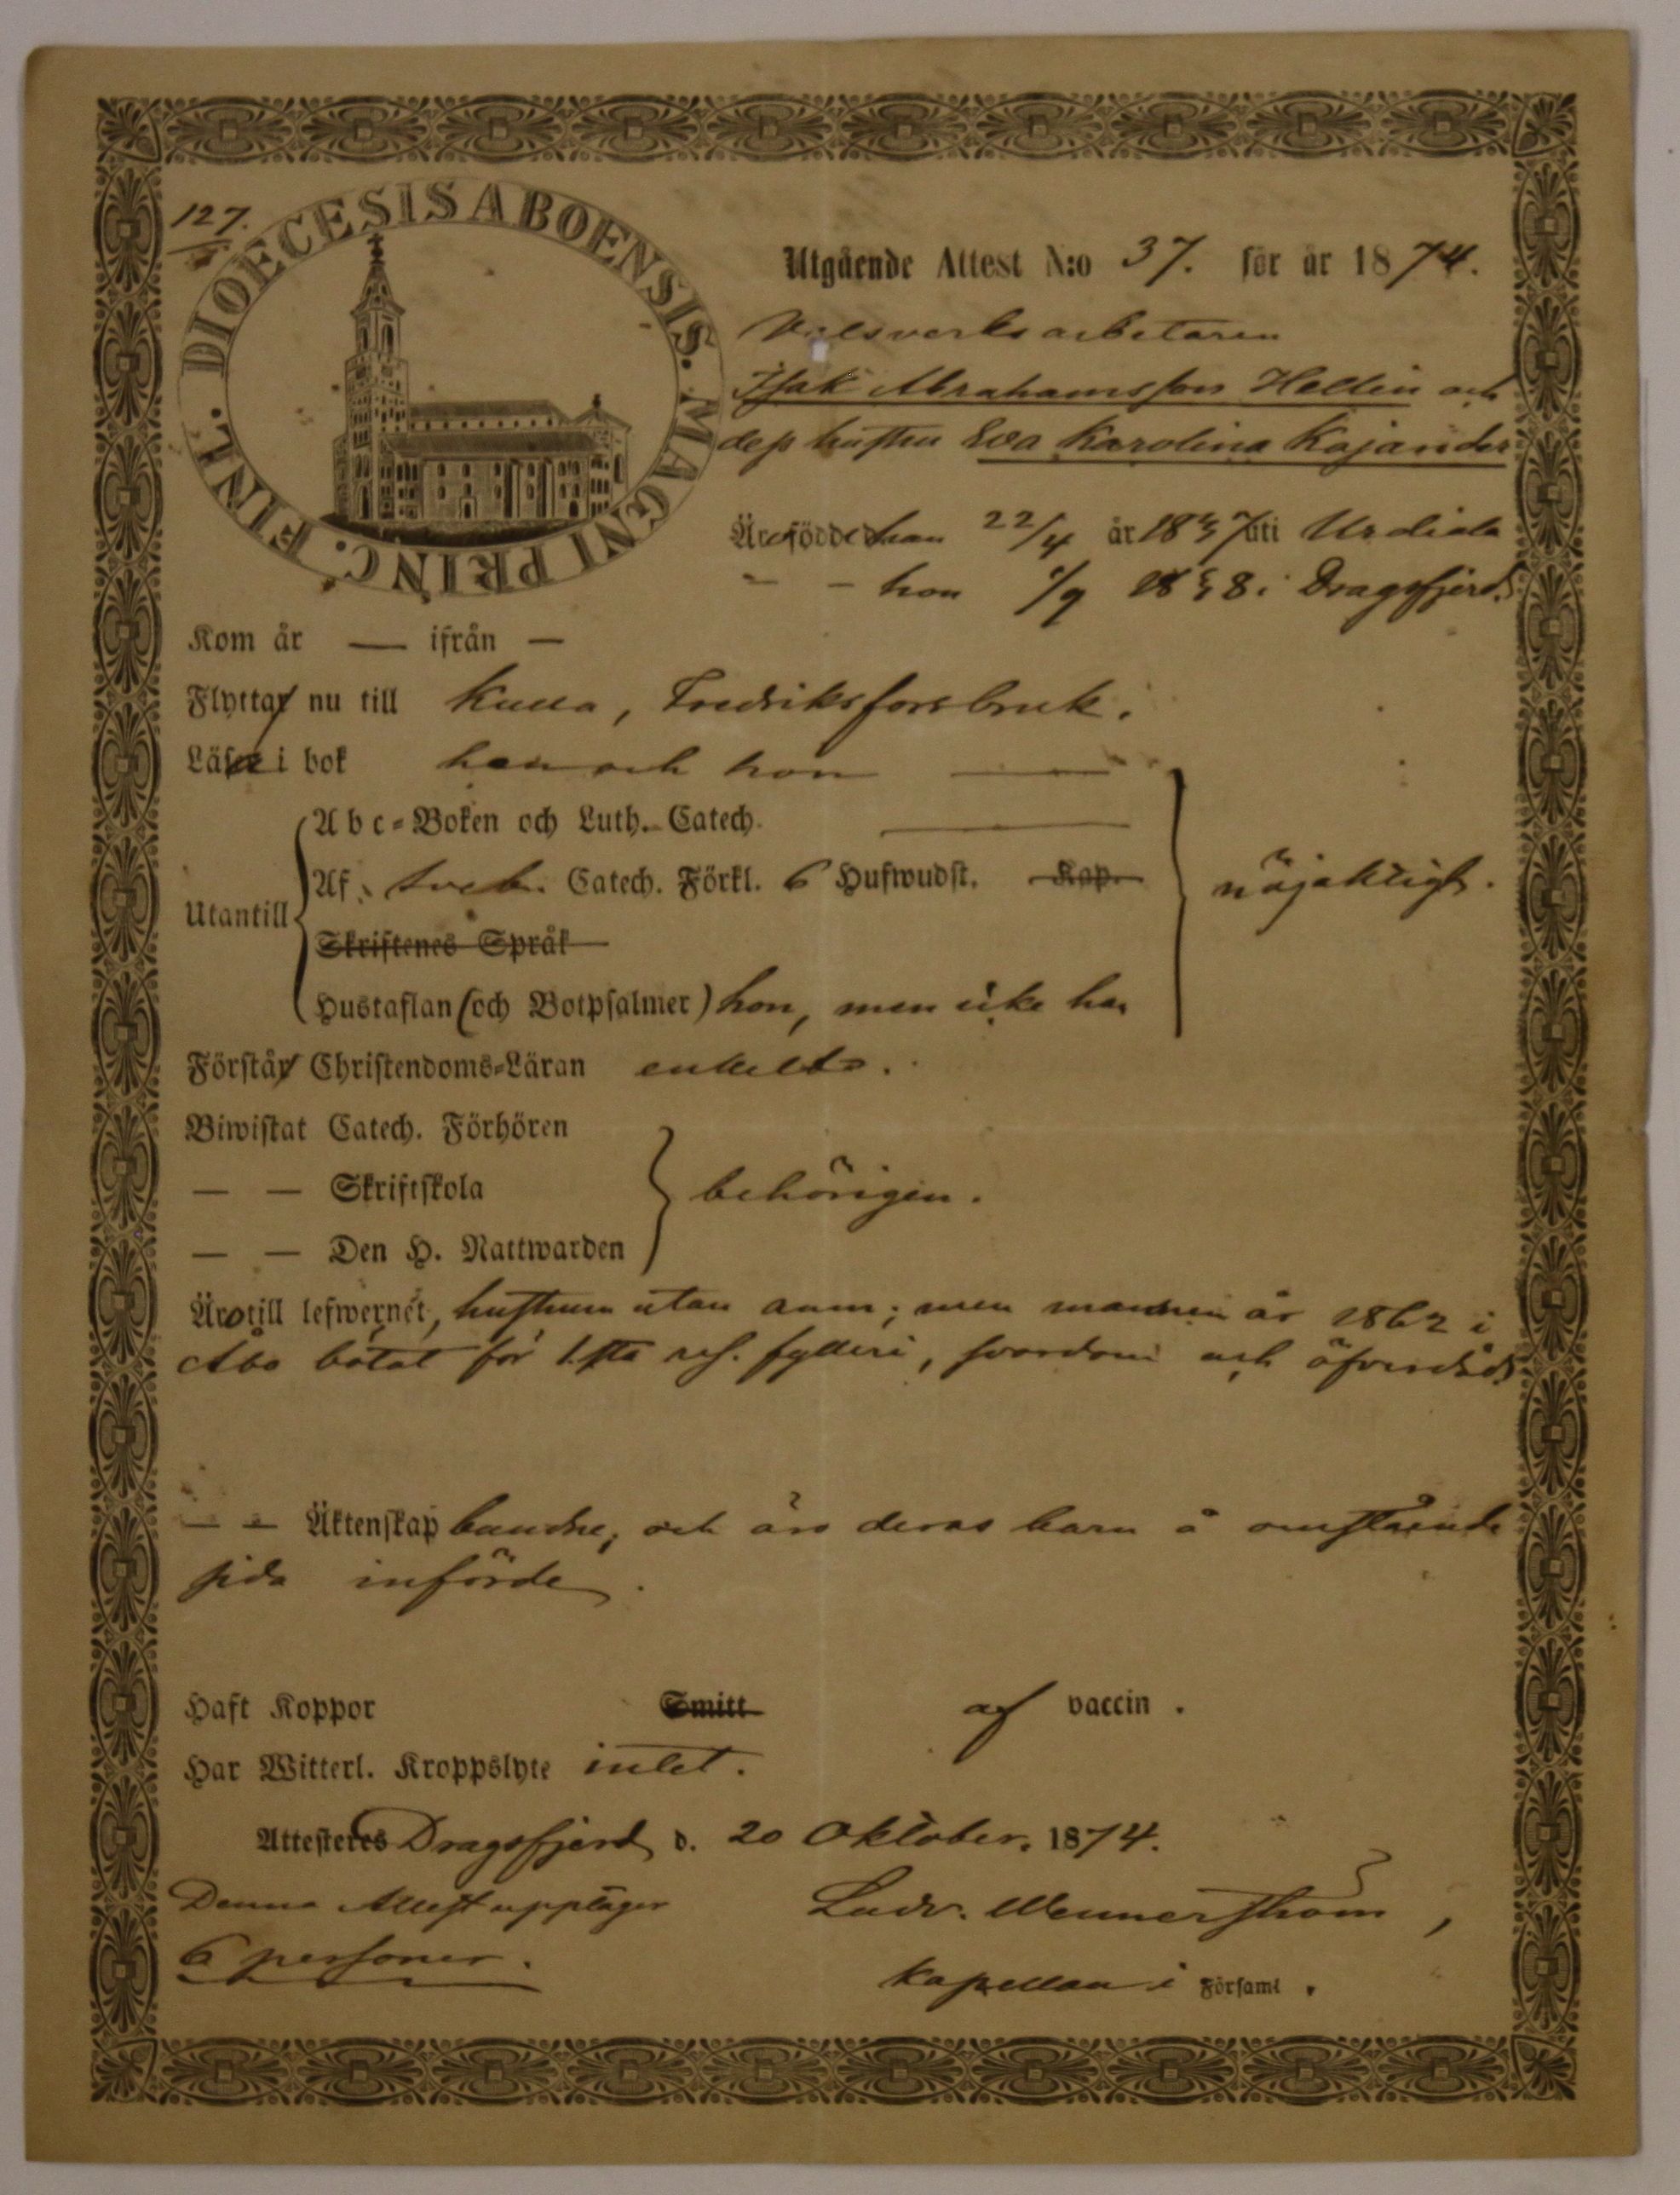 127.
DIOECESIS ABOENSIS. MAGNI PRINC. FINL.
Utgående Attest N:o 37. för år 1874.
Valsverks arbetaren
Isak Abrahamsson Hellin och
dess hustru Eva Karolina Kajander
Äro födde han 22/4 år 1837 uti Urdiala
— — hon 1/9 1838 i Dragsfjerd.
Kom år — ifrån —
Flytta nu till Kulla, Fredriksforsbruk.
Läsa i bok han och hon —
Abc-Boken och Luth. Catech. —
Af Sveb. Catech. Förkl. 6 Hufwudst. Kap. nöjaktigt.
Utantill
Skriftenes Språk
Hustaflan (och Botpsalmer) hon, men icke han
Förstå Christendoms-Läran enkelt.
Biwistat Catech. Förhören
— — Skriftskola behörigen.
— — Den H. Nattwarden
Äro till lefwernet, hustrun utan anm; men mannen år 1862 i
Åbo bötat för 1sta res. fylleri, svordom och öfverdåd.
— — Äktenskap bundne, och äro deras barn å omstående
sida införde.
Haft Koppor Smitt af vaccin.
Har Witterl. Kroppslyte intet.
Attesteres Dragsfjerd d. 20 Oktober. 1874.
Denna Attest upptager Ludv. Wennerström,
6 personer. kapellan i Församl.